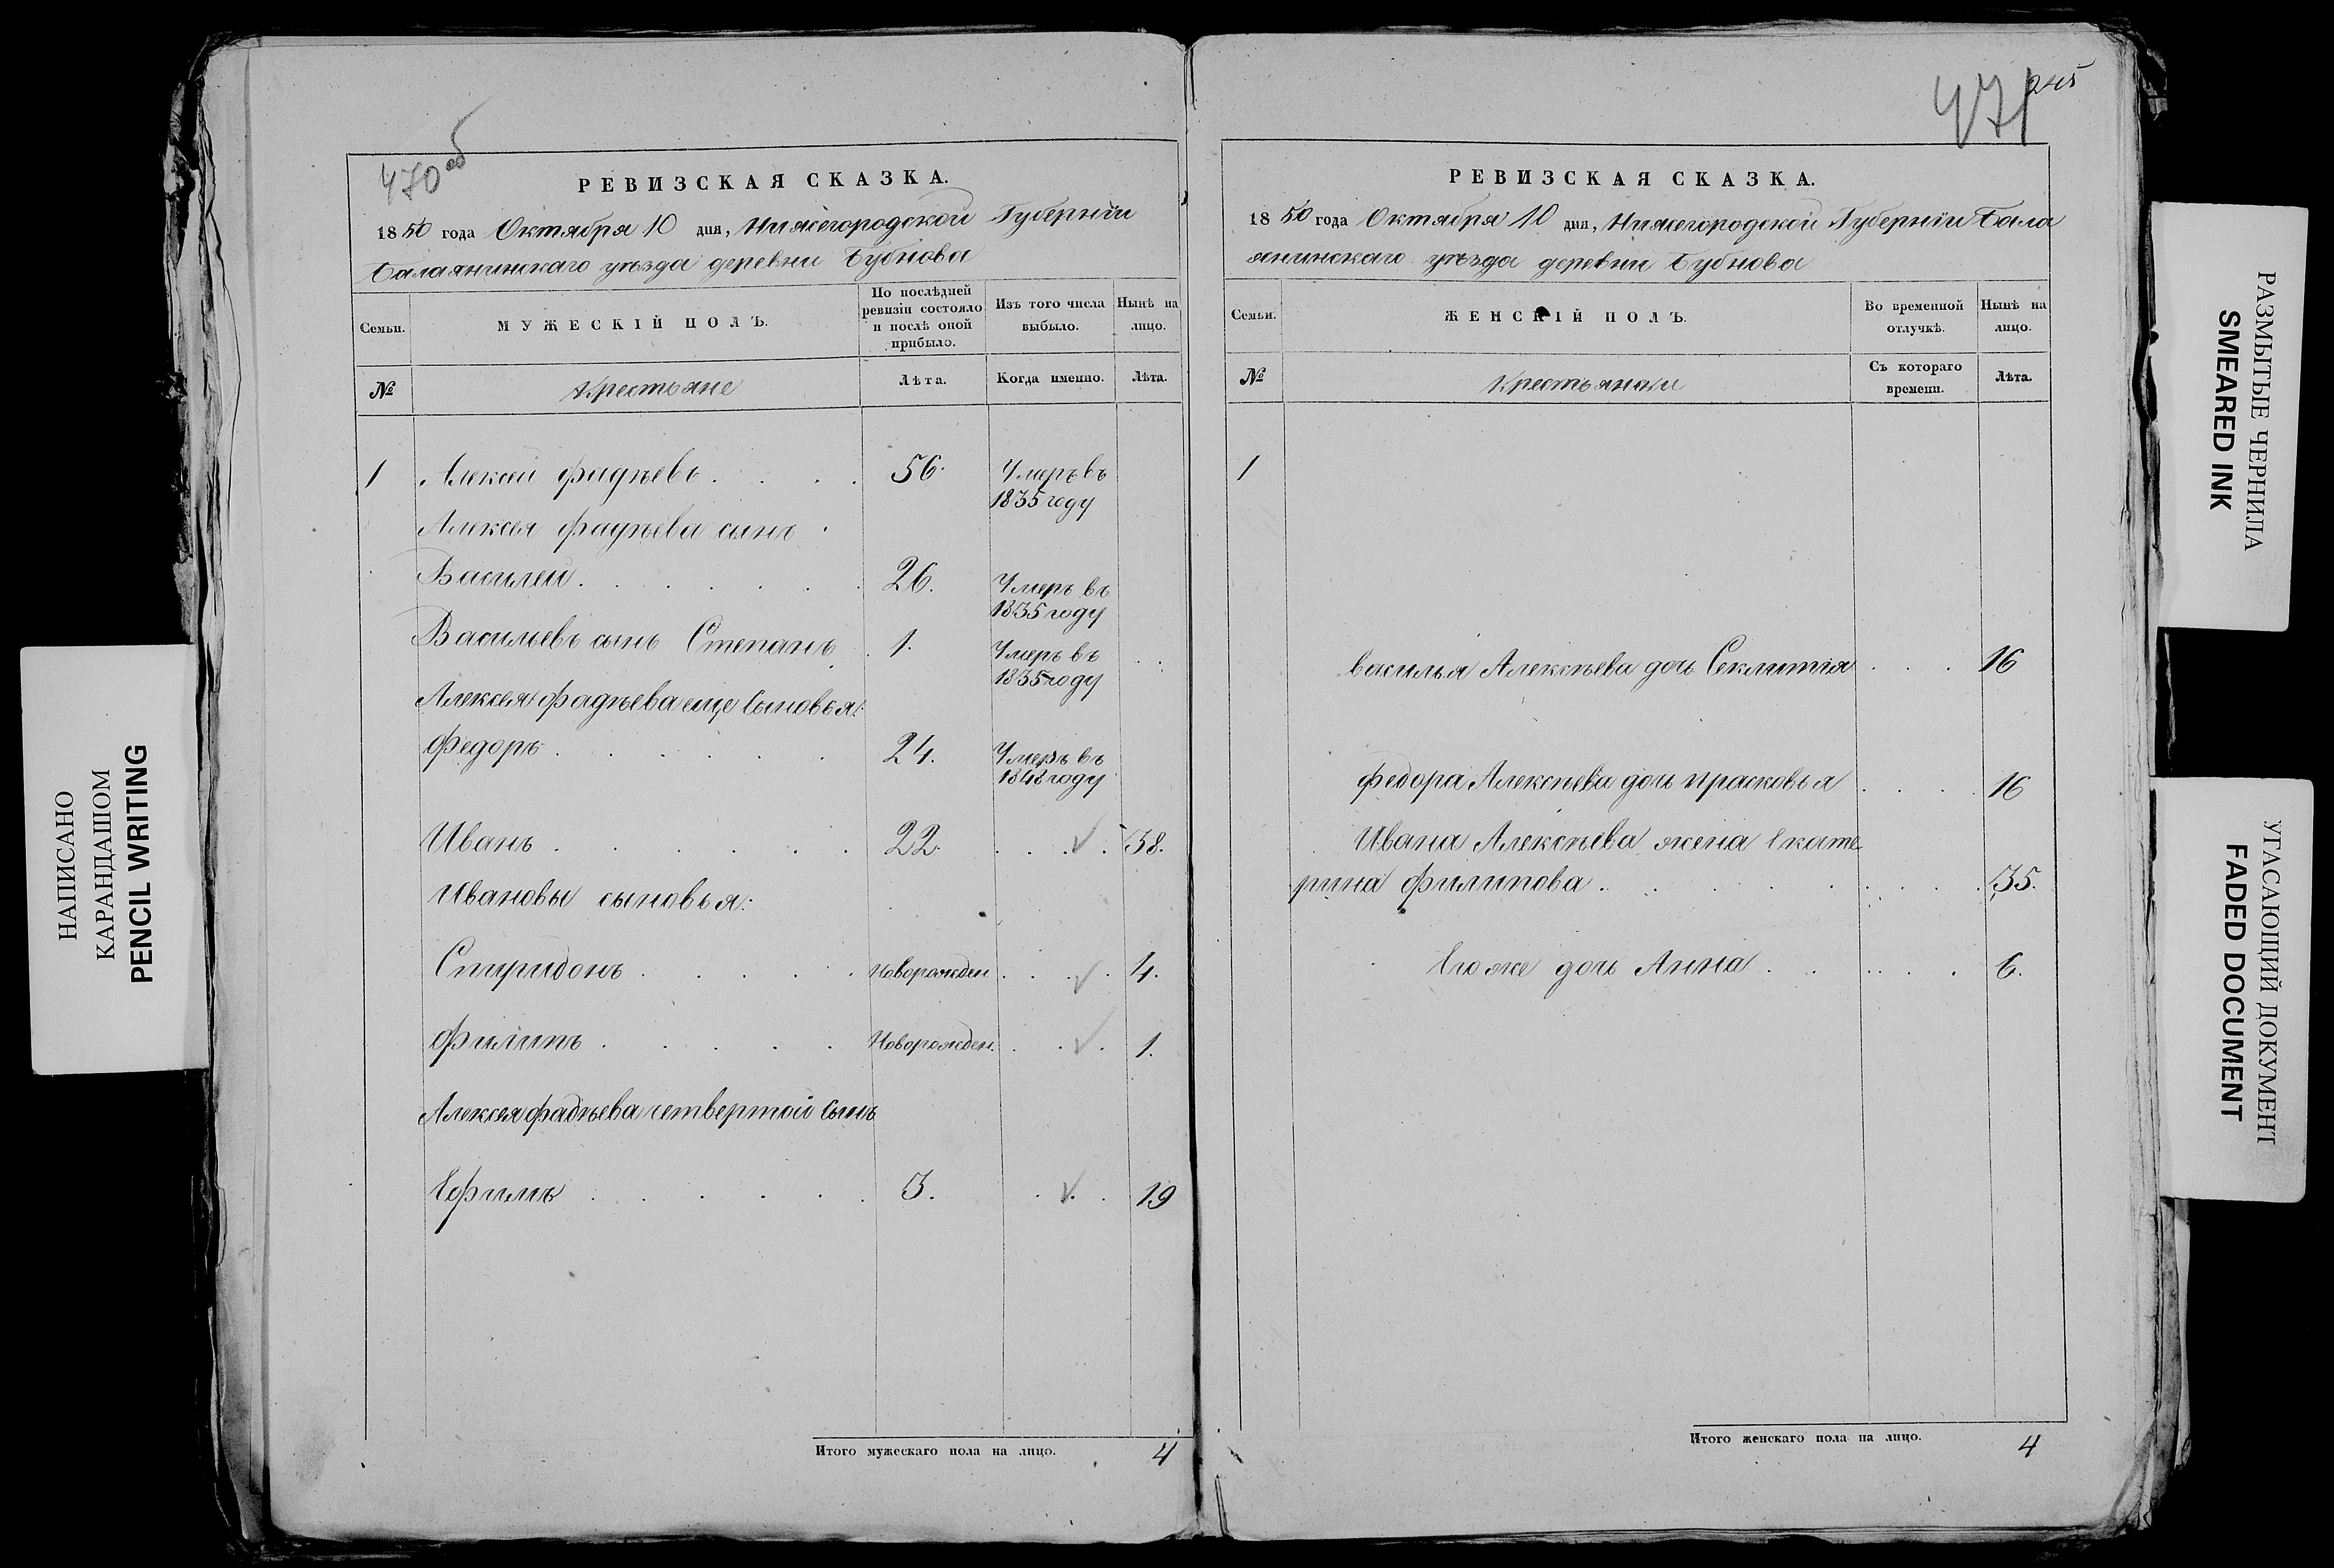 НАПИСАНО
КАРАНДАШОМ
PENCIL WRITING
470об
РЕВИЗСКАЯ СКАЗКА.
1850 года Октября 10 дня, Нижегородской Губернiи
Балахнинскаго уѣзда деревни Бубнова
Семьи.
МУЖЕСКIЙ ПОЛЪ.
По послѣдней
ревизiи состояло
и послѣ оной
прибыло.
Изъ того числа
выбыло.
Нынѣ на
лицо.
№
Крестьяне
Лѣта.
Когда именно.
Лѣта.
1 Алексей Фадѣевъ . . . . 56. Умеръ въ
1835 году
Алексея Фадѣева сынъ
Василей . . . . . . 26. Умеръ въ
1835 году
Васильевъ сынъ Степанъ . 1. Умеръ въ
1835 году
Алексея Фадѣева еще сыновья:
Федоръ . . . . . . 24. Умеръ въ
1848 году
Иванъ . . . . . . 22. . . . 38.
Ивановы сыновья:
Спиридонъ . . . . . Новорожден . . . . 4.
Филипъ . . . . . Новорожден. . . . 1.
Алексея Фадѣева четвертой сынъ
Ефимъ . . . . . . 3. . . . 19
Итого мужескаго пола на лицо. 4
471
245
РЕВИЗСКАЯ СКАЗКА.
1850 года Октября 10 дня, Нижегородской Губернiи Бала
хнинскаго уѣзда деревни Бубнова
Семьи.
ЖЕНСКIЙ ПОЛЪ.
Во временной
отлучкѣ.
Нынѣ на
лицо.
№
Крестьянки
Съ котораго
времени.
Лѣта.
1
Василья Алексѣева дочь Секлитiя . . . 16
Федора Алексѣева дочь Прасковья . . . . 16
Ивана Алексѣева жена Екате
рина Филипова . . . . . . . . 35.
Его же дочь Анна . . . . . 6.
Итого женскаго пола на лицо. 4
РАЗМЫТЫЕ ЧЕРНИЛА
SMEARED INK
УГАСАЮЩИЙ ДОКУМЕНТ
FADED DOCUMENT